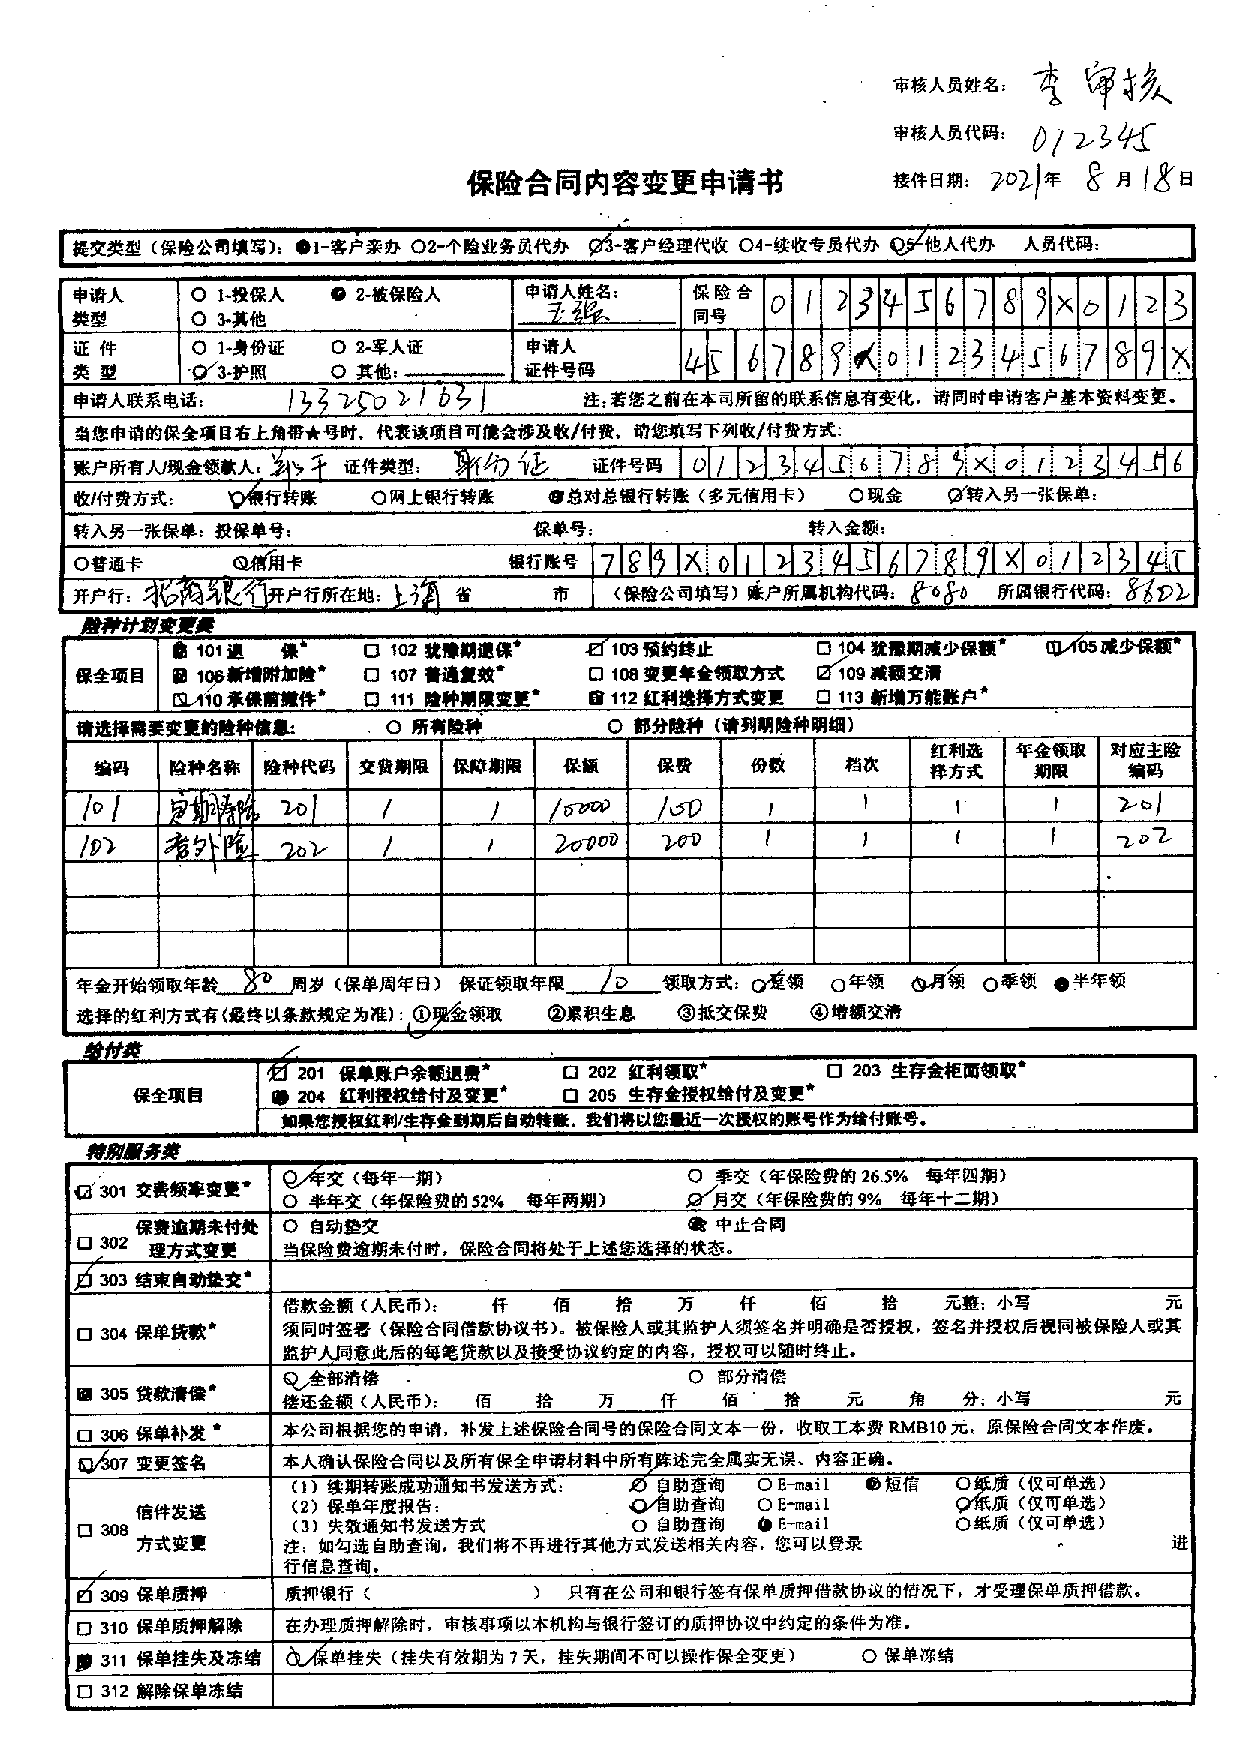 审核人员姓名: 李审核
审核人员代码: 012345
保险合同内容变更申请书
接件日期: 2021年 8月18日
提交类型（保险公司填写）: 1-客户亲办 2-个险业务员代办 3-客户经理代收 4-续收专员代办 5-他人代办 人员代码:
申请人类型 1-投保人 2-被保险人 3-其他 申请人姓名: 王强 保险合同号 0123456789X0123
证件类型 1-身份证 2-军人证 3-护照 其他: 申请人证件号码 456789X0123456789X
申请人联系电话: 13325021631 注:若您之前在本司所留的联系信息有变化，请同时申请客户基本资料变更。
当您申请的保全项目右上角带★号时，代表该项目可能会涉及收/付费，请您填写下列收/付费方式:
账户所有人/现金领款人: 郑子 证件类型: 身份证 证件号码 0123456789X0123456
收/付费方式: 银行转账 网上银行转账 总对总银行转账（多元信用卡） 现金 转入另一张保单:
转入另一张保单: 投保单号: 保单号: 转入金额:
普通卡 信用卡 银行账号 789X0123456789X012345
开户行: 招商银行 开户行所在地: 上海 省 市 （保险公司填写）账户所属机构代码: 8080 所属银行代码: 8602
险种计划变更类
保全项目
101 退 保* 102 犹豫期退保* 103 预约终止 104 犹豫期减少保额* 105 减少保额*
106 新增附加险* 107 普通复效* 108 变更年金领取方式 109 减额交清
110 承保前撤件* 111 险种期限变更* 112 红利选择方式变更 113 新增万能账户*
请选择需要变更的险种信息: 所有险种 部分险种（请列明险种明细）
编码 险种名称 险种代码 交费期限 保障期限 保额 保费 份数 档次 红利选择方式 年金领取期限 对应主险编码
101 定期寿险 201 1 1 10000 100 1 1 1 1 201
102 意外险 202 1 1 20000 200 1 1 1 1 202
年金开始领取年龄 80 周岁（保单周年日） 保证领取年限 10 领取方式: 趸领 年领 月领 季领 半年领
选择的红利方式有(最终以条款规定为准): ①现金领取 ②累积生息 ③抵交保费 ④增额交清
给付类
保全项目
201 保单账户余额退费* 202 红利领取* 203 生存金柜面领取*
204 红利授权给付及变更* 205 生存金授权给付及变更*
如果您授权红利/生存金到期后自动转账，我们将以您最近一次授权的账号作为给付账号。
特别服务类
301 交费频率变更* 年交（每年一期） 季交（年保险费的26.5% 每年四期）
半年交（年保险费的52% 每年两期） 月交（年保险费的9% 每年十二期）
302 保费逾期未付处理方式变更 自动垫交 中止合同
当保险费逾期未付时，保险合同将处于上述您选择的状态。
303 结束自动垫交*
304 保单贷款* 借款金额（人民币）: 仟 佰 拾 万 仟 佰 拾 元整: 小写 元
须同时签署（保险合同借款协议书）。被保险人或其监护人须签名并明确是否授权，签名并授权后视同被保险人或其
监护人同意此后的每笔贷款以及接受协议约定的内容，授权可以随时终止。
305 贷款清偿* 全部清偿 部分清偿
偿还金额（人民币）: 佰 拾 万 仟 佰 拾 元 角 分: 小写 元
306 保单补发* 本公司根据您的申请，补发上述保险合同号的保险合同文本一份，收取工本费RMB10元，原保险合同文本作废。
307 变更签名 本人确认保险合同以及所有保全申请材料中所有陈述完全属实无误、内容正确。
308 信件发送方式变更
（1）续期转账成功通知书发送方式: 自助查询 E-mail 短信 纸质（仅可单选）
（2）保单年度报告: 自助查询 E-mail 纸质（仅可单选）
（3）失效通知书发送方式 自助查询 E-mail 纸质（仅可单选）
注: 如勾选自助查询，我们将不再进行其他方式发送相关内容，您可以登录 进
行信息查询。
309 保单质押 质押银行（ ） 只有在公司和银行签有保单质押借款协议的情况下，才受理保单质押借款。
310 保单质押解除 在办理质押解除时，审核事项以本机构与银行签订的质押协议中约定的条件为准。
311 保单挂失及冻结 保单挂失（挂失有效期为7天，挂失期间不可以操作保全变更） 保单冻结
312 解除保单冻结